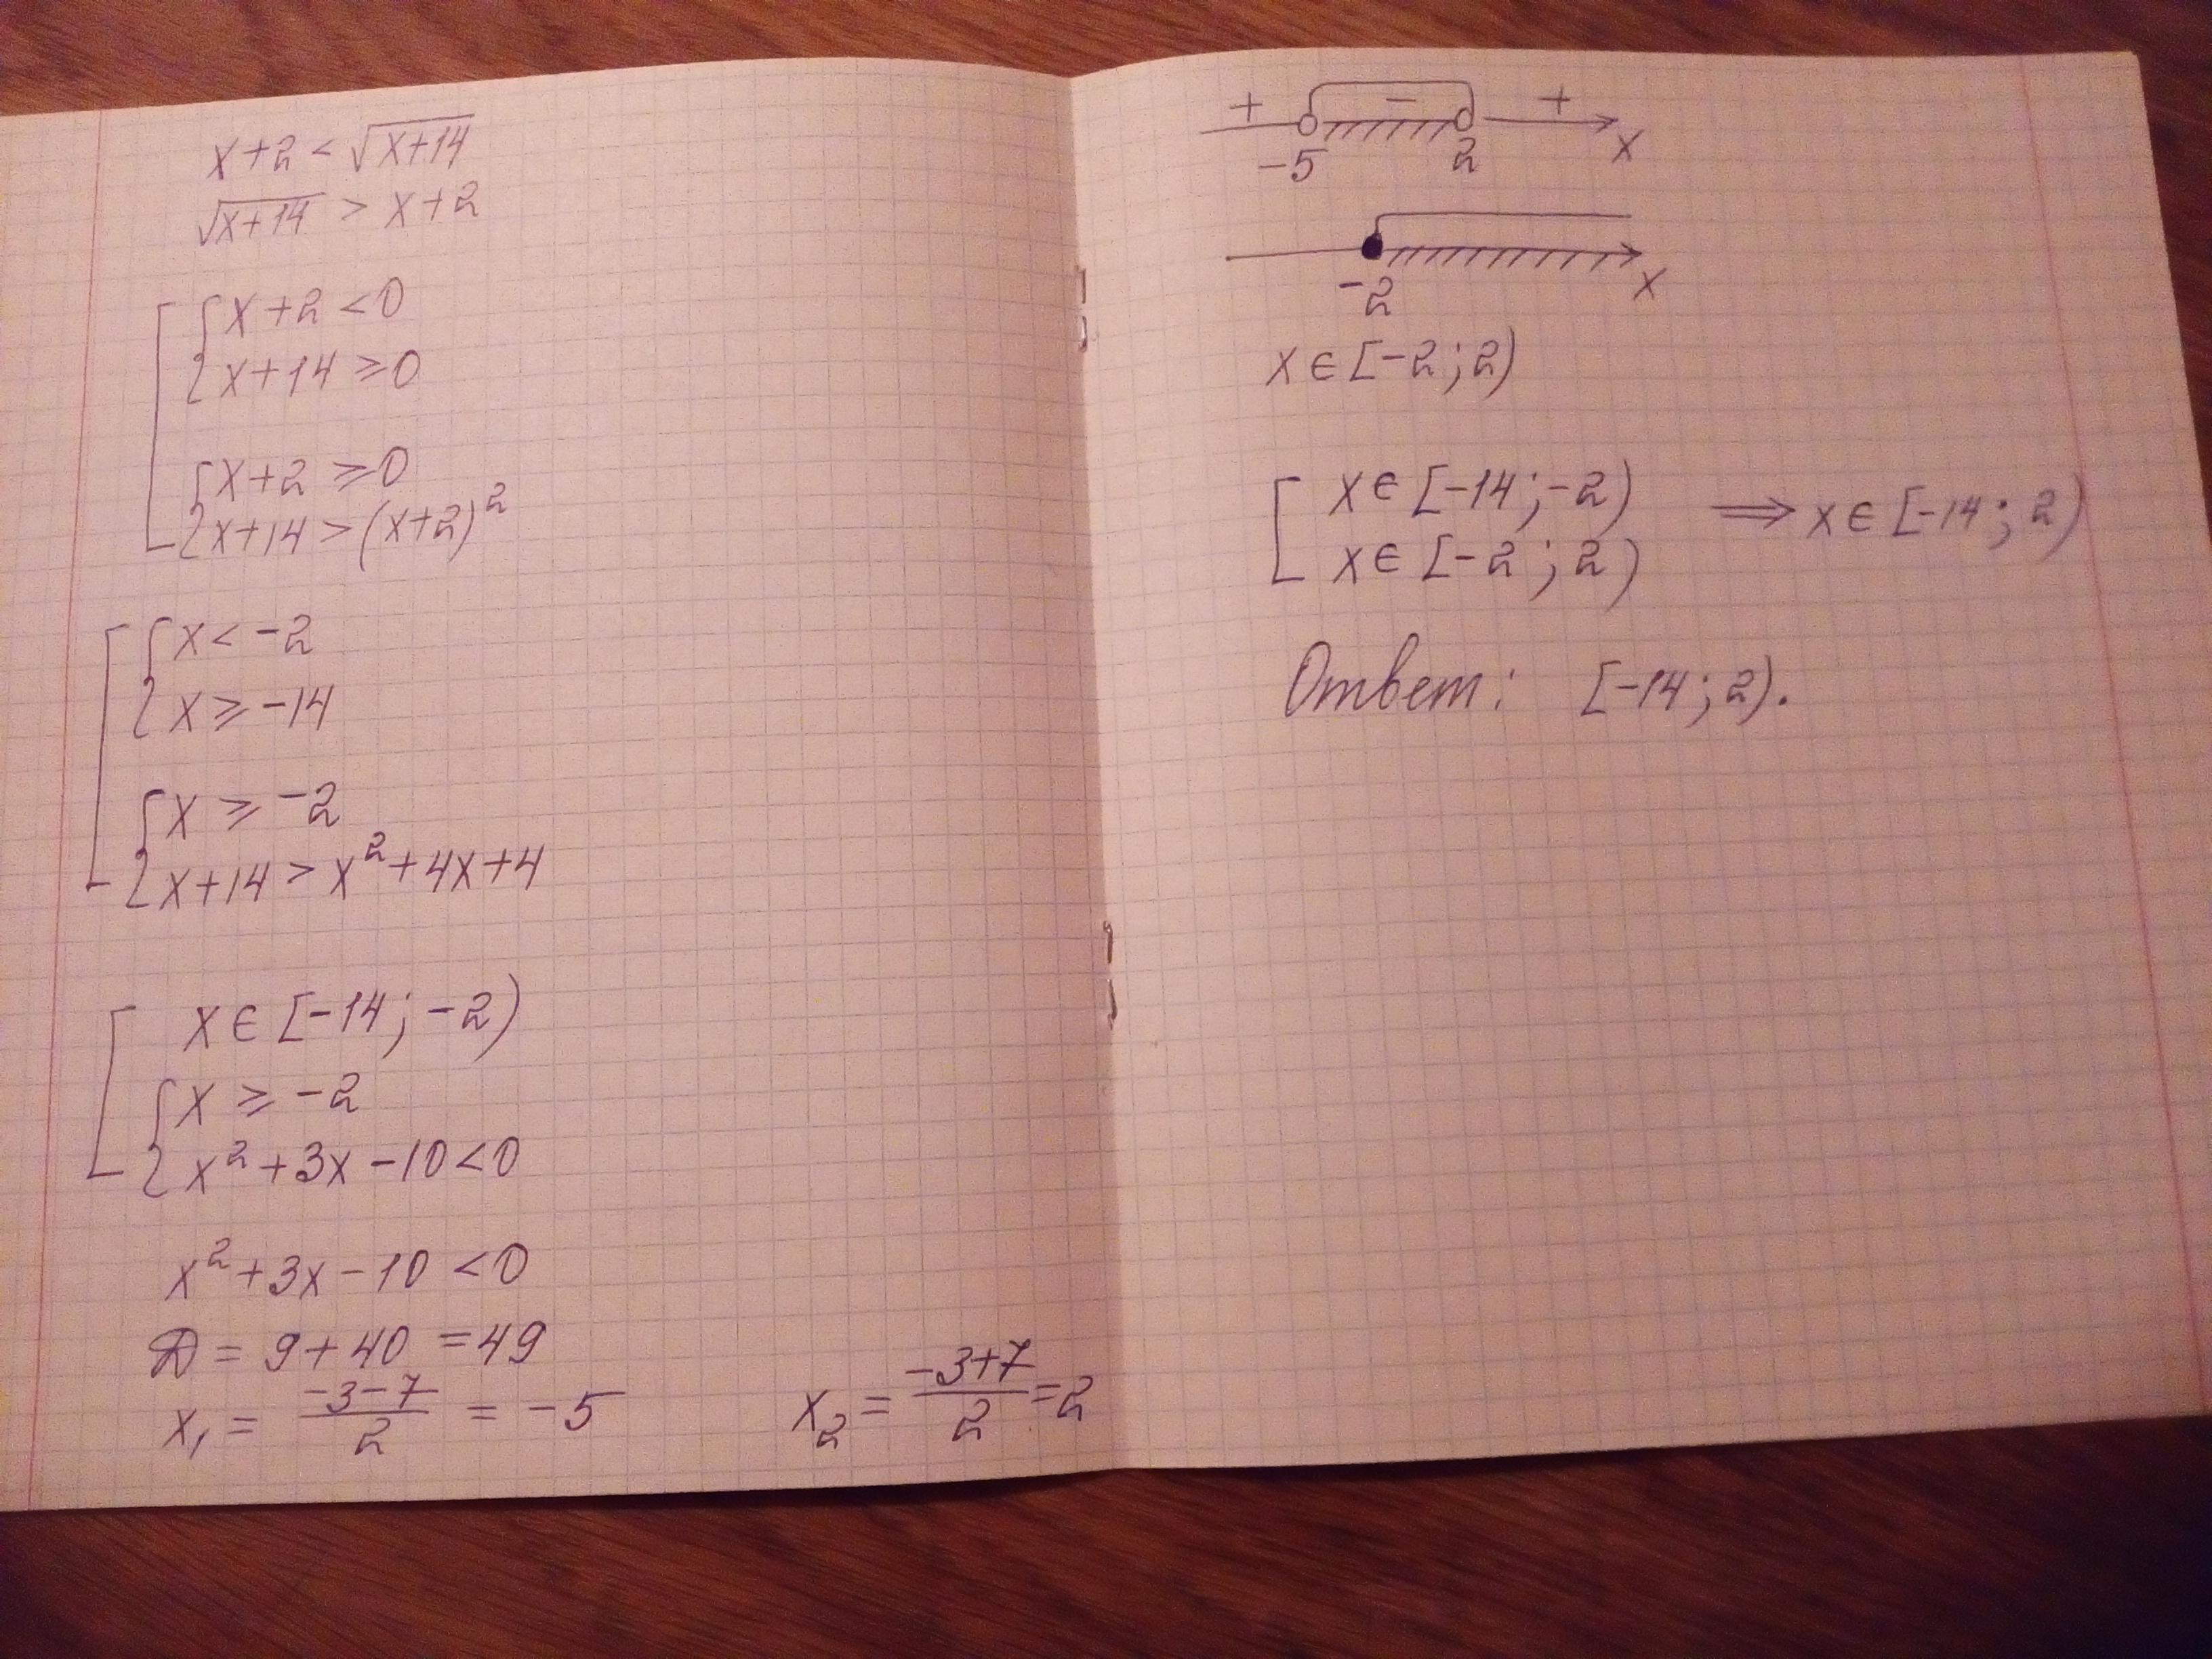 x+2 < √(x+14)
√(x+14) > x+2
[ { x+2 < 0
{ x+14 ⩾ 0
{ x+2 ⩾ 0
{ x+14 > (x+2)²
[ { x < -2
{ x ⩾ -14
{ x ⩾ -2
{ x+14 > x²+4x+4
[ x ∈ [-14; -2)
{ x ⩾ -2
{ x²+3x-10<0
x²+3x-10 <0
D = 9+40 =49
x₁ = (-3-7)/2 = -5 x₂ = (-3+7)/2 = 2
+ - +
-5 2 x
-2 x
x ∈ [-2; 2)
[ x ∈ [-14; -2)
x ∈ [-2; 2) ⟹ x ∈ [-14; 2)
Ответ: [-14; 2).